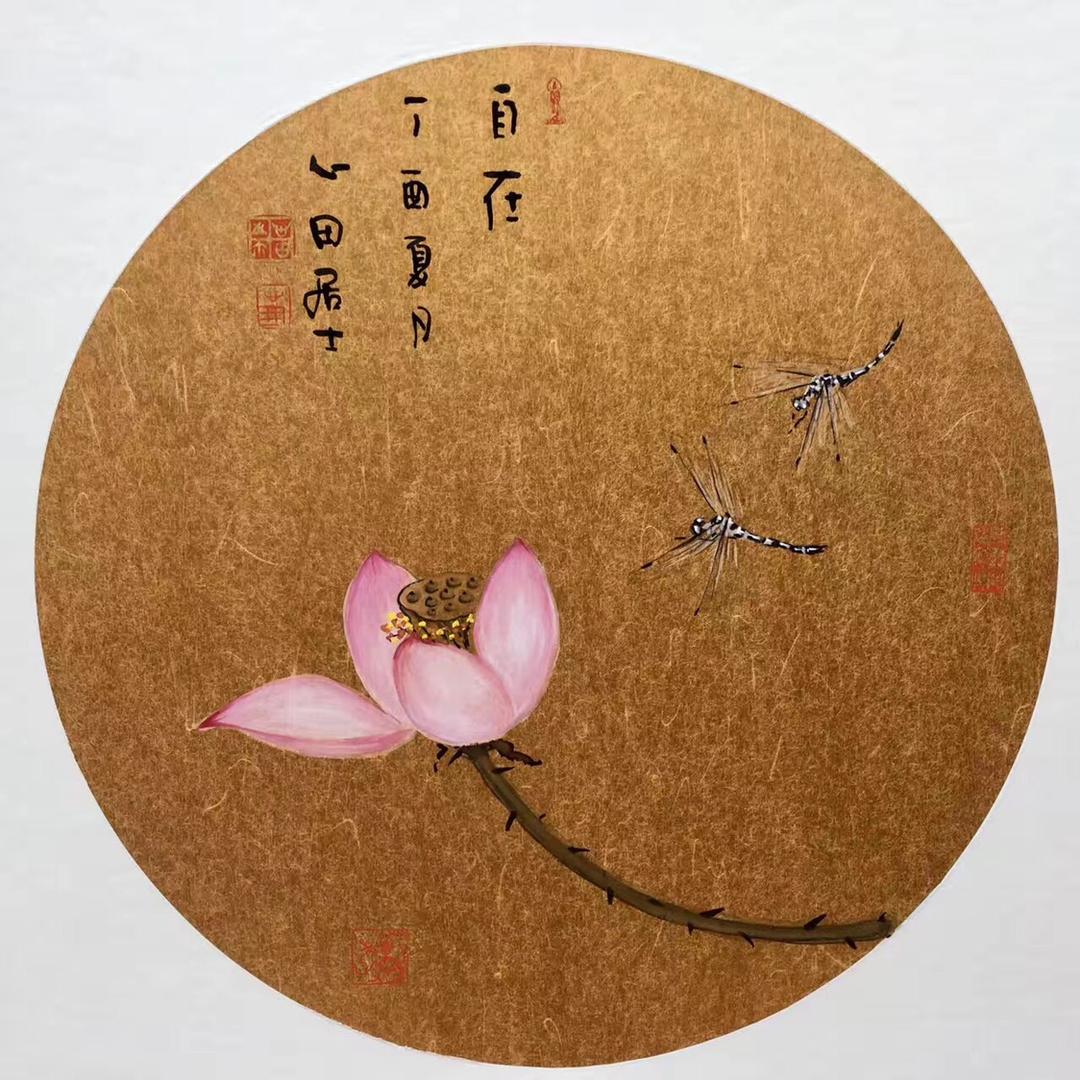 自在
丁酉夏月
心田居士